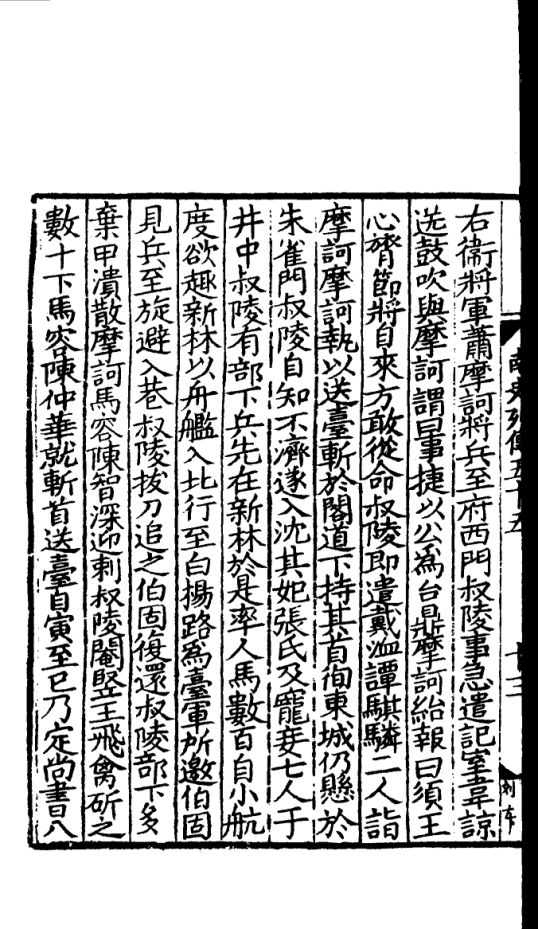 南史列傳五十五
十三
刘夲
右衞將軍蕭摩訶將兵至府西門叔陵事急遣記室韋諒
送鼓吹與摩訶謂曰事捷以公為台鼎摩訶紿報曰須王
心膂節將自來方敢從命叔陵即遣戴溫譚騏驎二人詣
摩訶摩訶執以送臺斬於閣道下持其首徇東城仍懸於
朱雀門叔陵自知不濟遂入沈其妃張氏及寵妾七人于
井中叔陵有部下兵先在新林於是率人馬數百自小航
度欲趣新林以舟艦入北行至白楊路為臺軍所邀伯固
見兵至旋避入巷叔陵拔刀追之伯固復還叔陵部下多
棄甲潰散摩訶馬容陳智深迎刺叔陵閹竪王飛禽斫之
數十下馬容陳仲華就斬首送臺自寅至巳乃定尚書八